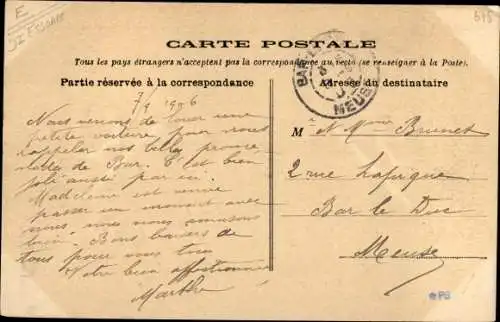 CARTE POSTALE
Tous les pays étrangers n'acceptent pas la correspondance au recto (se renseigner à la Poste).
Partie réservée à la correspondance
Adresse du destinataire
7/9 1906
Nous venons de louer une
petite voiture pour nous
rappeler nos belles prome
nades de Bar. C'est bien
joli aussi par ici.
Madeleine est venue
passer un moment avec
nous, nous nous amusons
bien. Bons baisers de
tous pour vous tous
Votre bien affectionnée
Marthe
M
Mme Brunet
2 rue
Bar le Duc
Meuse
BAR
MEUSE
PB